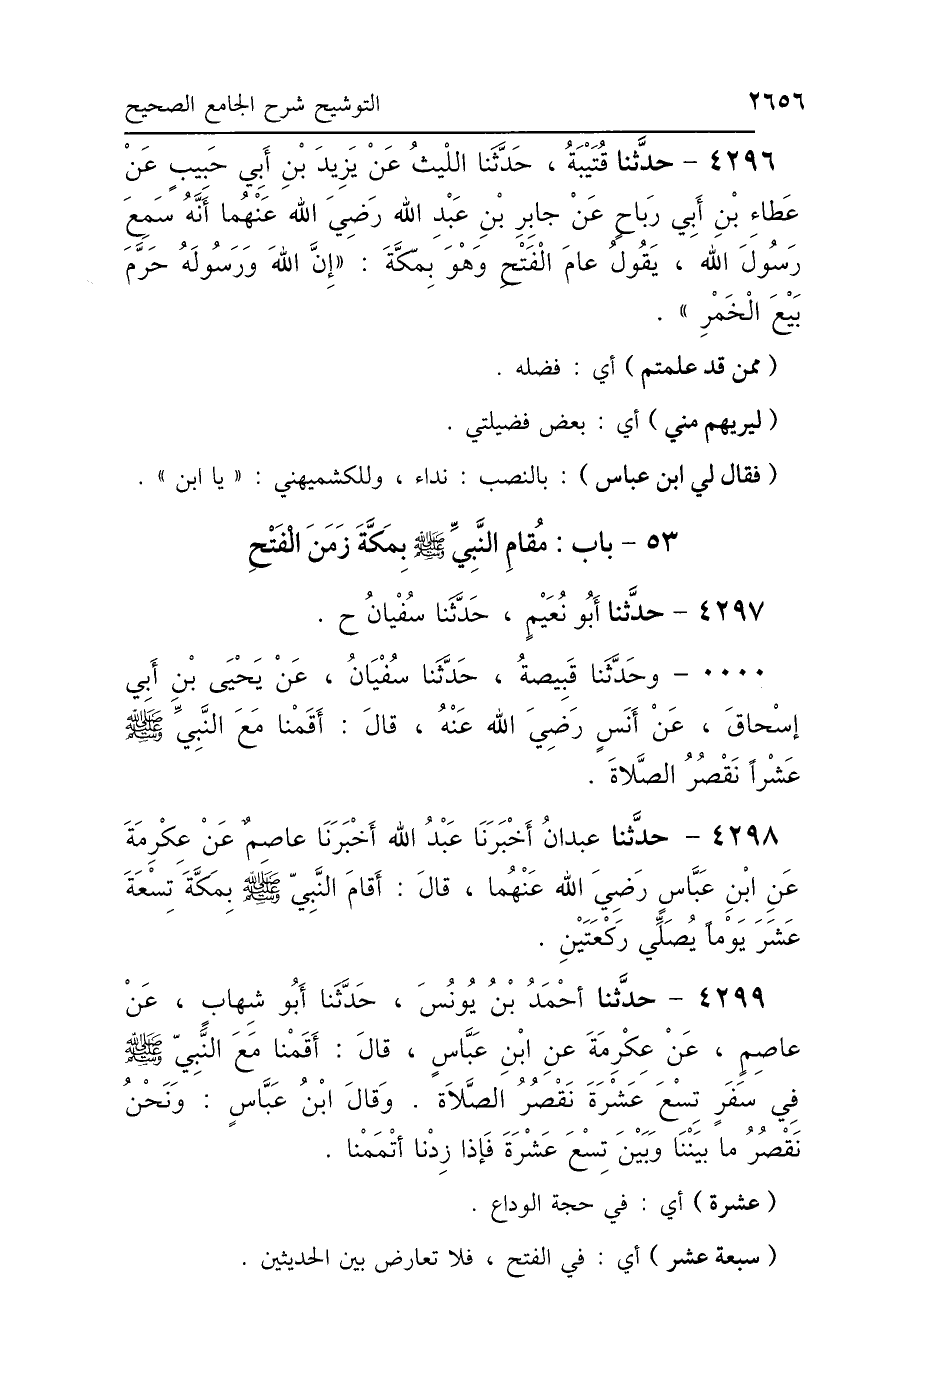 ٢٦٥٦ التوشيح شرح الجامع الصحيح
٤٢٩٦ - حدَّثنا قُتَيْبَةُ ، حَدَّثَنا اللَّيثُ عَنْ يَزِيدَ بْنِ أَبي حَبيبٍ عَنْ
عَطاءِ بْنِ أَبي رَباحٍ عَنْ جابِرِ بْنِ عَبْدِ الله رَضِيَ الله عَنْهُما أَنَّهُ سَمِعَ
رَسُولَ الله ، يَقُولُ عامَ الْفَتْحِ وَهْوَ بِمَكَّةَ : «إِنَّ اللهَ وَرَسُولَهُ حَرَّمَ
بَيْعَ الْخَمْرِ » .
( ممن قد علمتم ) أي : فضله .
( ليريهم مني ) أي : بعض فضيلتي .
( فقال لي ابن عباس ) : بالنصب : نداء ، وللكشميهني : « يا ابن » .
٥٣ - باب : مُقامِ النَّبِيِّ ﷺ بِمَكَّةَ زَمَنَ الْفَتْحِ
٤٢٩٧ - حدَّثنا أَبُو نُعَيْمٍ ، حَدَّثَنا سُفْيانُ ح .
٠٠٠٠ - وحَدَّثَنا قَبِيصةُ ، حَدَّثَنا سُفْيَانُ ، عَنْ يَحْيَى بْنِ أَبي
إسْحاقَ ، عَنْ أَنَسٍ رَضِيَ الله عَنْهُ ، قالَ : أَقَمْنا مَعَ النَّبِيِّ ﷺ
عَشْراً نَقْصُرُ الصَّلاةَ .
٤٢٩٨ - حدَّثنا عبدانُ أَخْبَرَنَا عَبْدُ الله أَخْبَرَنَا عاصِمٌ عَنْ عِكْرِمَةَ
عَنِ ابْنِ عَبَّاسٍ رَضِيَ الله عَنْهُما ، قالَ : أَقامَ النَّبِيّ ﷺ بِمَكَّةَ تِسْعَةَ
عَشَرَ يَوْماً يُصَلِّي رَكْعَتَيْنِ .
٤٢٩٩ - حدَّثنا أحْمَدُ بْنُ يُونُسَ ، حَدَّثَنا أَبُو شِهابٍ ، عَنْ
عاصِمٍ ، عَنْ عِكْرِمَةَ عنِ ابْنِ عَبَّاسٍ ، قالَ : أَقَمْنا مَعَ النَّبِيّ ﷺ
فِي سَفَرٍ تِسْعَ عَشْرَةَ نَقْصُرُ الصَّلاَة . وَقالَ ابْنُ عَبَّاسٍ : وَنَحْنُ
نَقْصُرُ ما بَيْنَنا وَبَيْنَ تِسْعَ عَشْرَةَ فَإذا زِدْنا أتْمَمْنا .
( عشرة ) أي : في حجة الوداع .
( سبعة عشر ) أي : في الفتح ، فلا تعارض بين الحديثين .